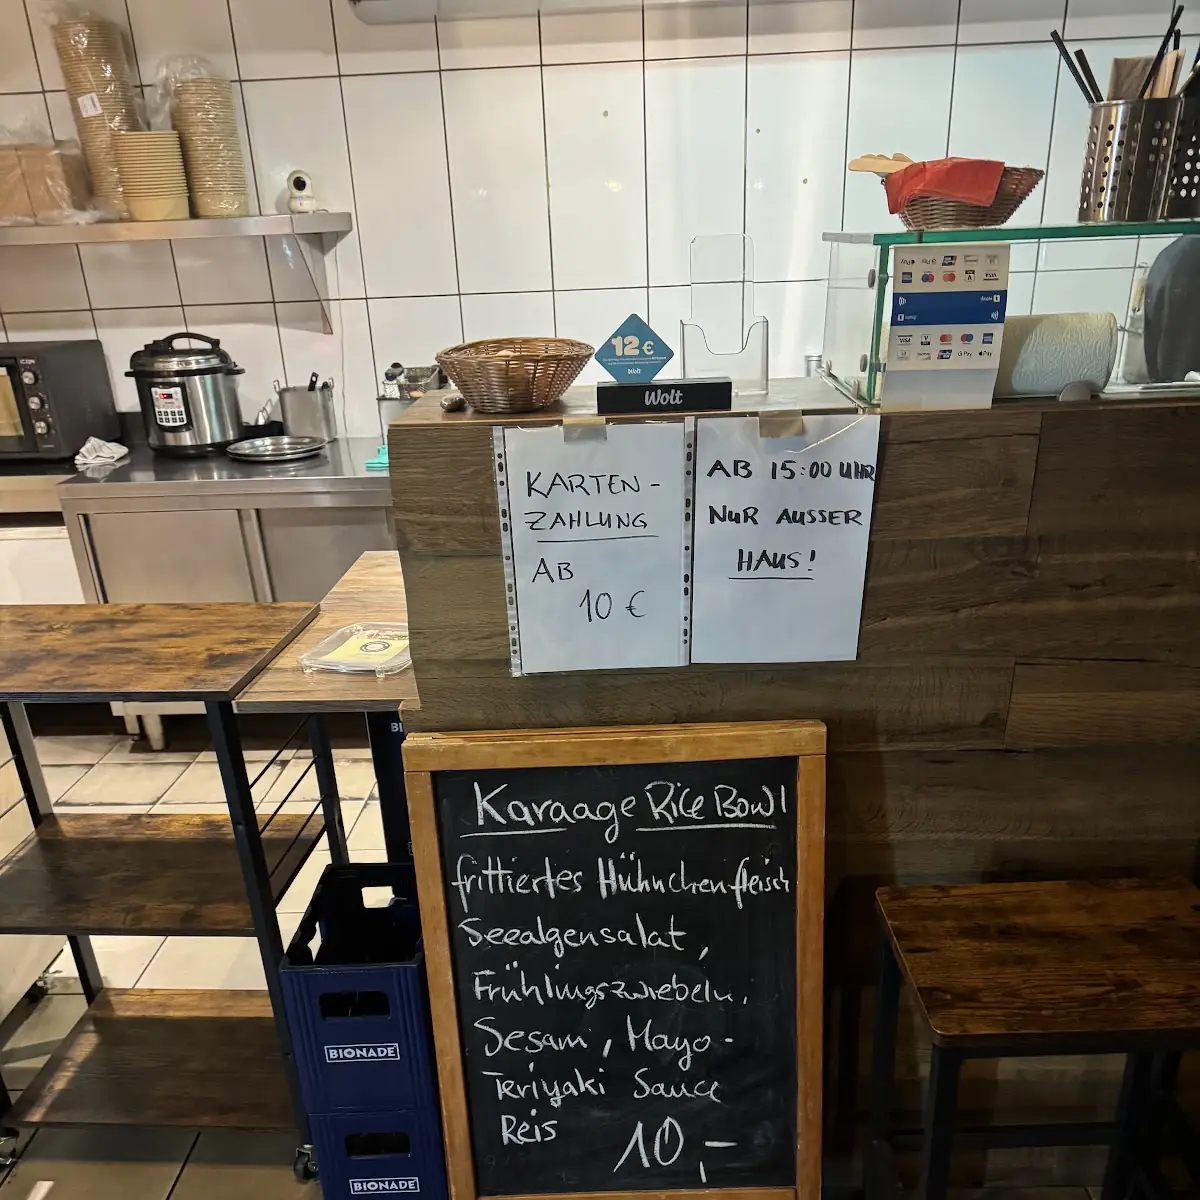 12 €
Wolt
Wolt
VISA
KARTEN-
ZAHLUNG
AB
10 €
AB 15:00 UHR
NUR AUSSER
HAUS!
VISA
G Pay
Pay
Karaage Rice Bowl
frittiertes Hühnchenfleisch
Seealgensalat,
Frühlingszwiebeln,
Sesam, Mayo-
Teriyaki Sauce
Reis
10,-
BIONADE
BIONADE